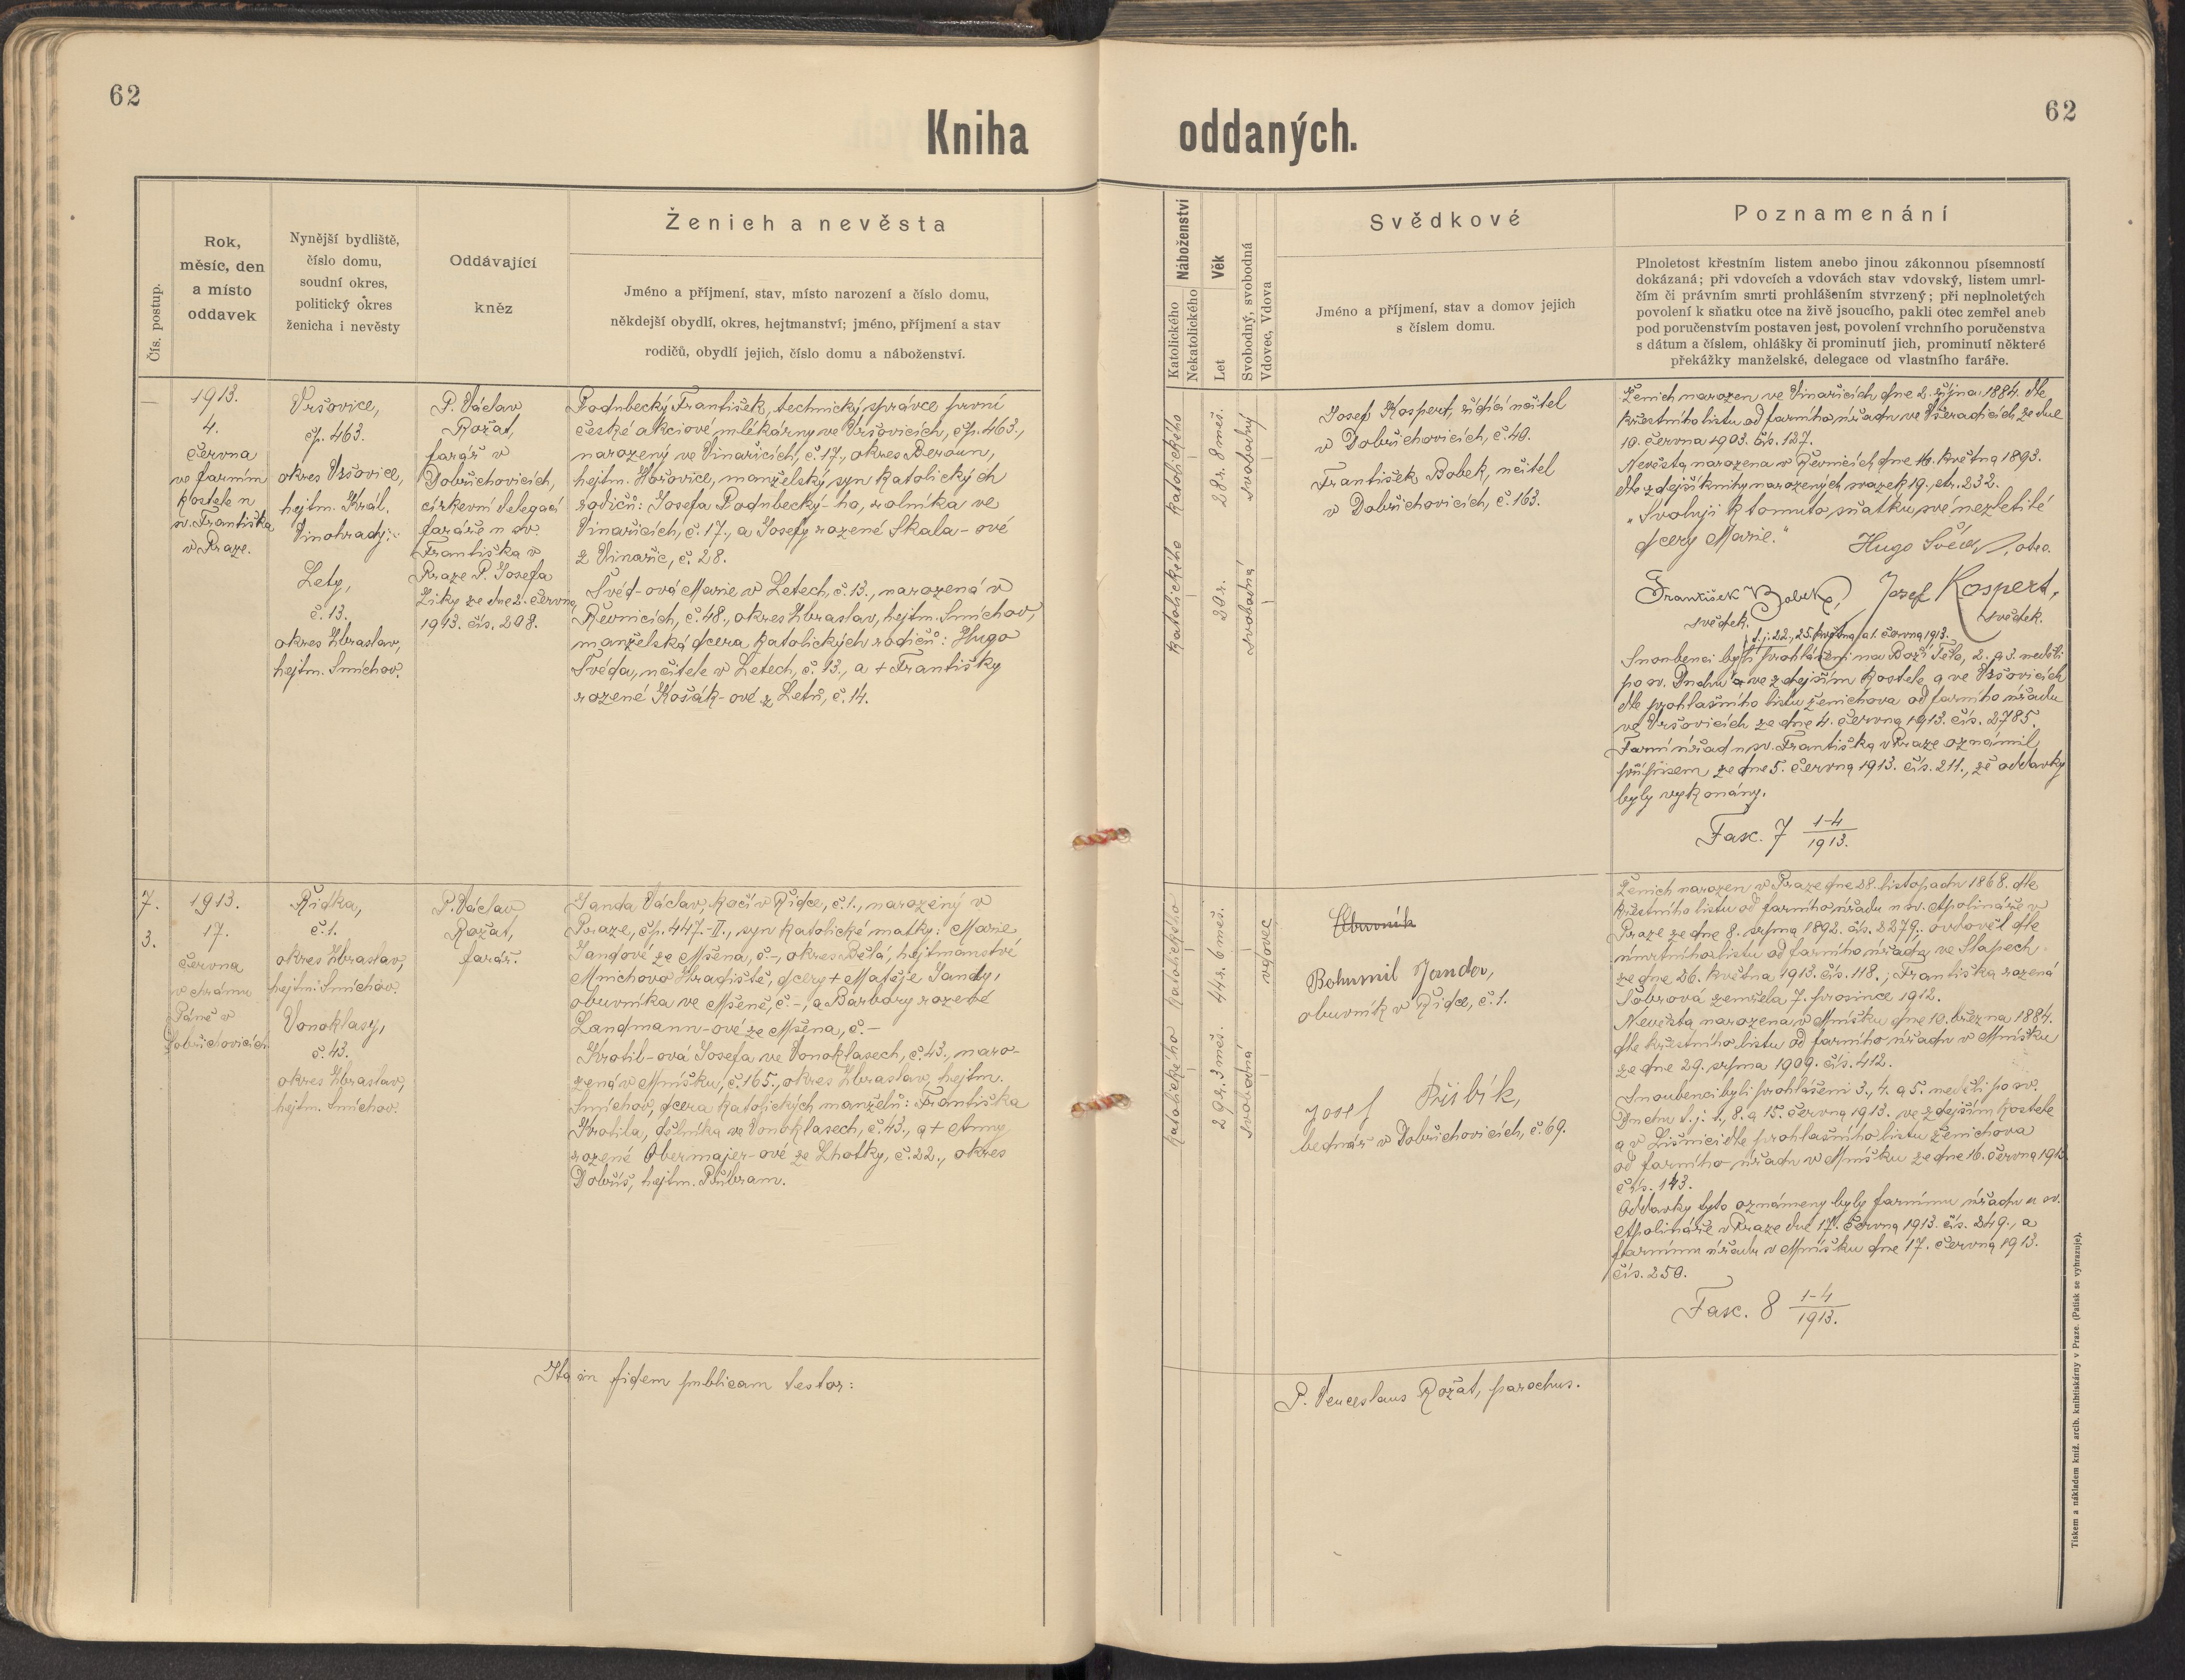 62
Kniha
Čís. postup.
Rok,
měsíc, den
a místo
oddavek
Nynější bydliště,
číslo domu,
soudní okres,
politický okres
ženicha i nevěsty
Oddávající
kněz
Ženich a nevěsta
Jméno a příjmení, stav, místo narození a číslo domu,
někdejší obydlí, okres, hejtmanství; jméno, příjmení a stav
rodičů, obydlí jejich, číslo domu a náboženství.
—
1913.
4.
června
ve farním
kostele u
sv. Františka
v Praze.
Vršovice,
čp. 463.
okres Vršovice,
hejtm. Král.
Vinohrady.
Lety,
č. 13.
okres Zbraslav,
hejtm. Smíchov.
P. Václav
Rožat,
farář v
Dobřichovicích,
církevní delegací
faráře u sv.
Františka v
Praze P. Josefa
Ziky ze dne 2. června
1913. čís. 208.
Podubecký František, technický správce první
české akciové mlékárny ve Vršovicích, čp. 463.,
narozený ve Vinařicích, č. 17., okres Beroun,
hejtm. Hořovice, manželský syn katolických
rodičů: Josefa Podubecký-ho, rolníka ve
Vinařicích, č. 17., a Josefy rozené Skala-ové
z Vinařic, č. 28.
Švéd-ová Marie v Letech, č. 13., narozená v
Řevnicích, č. 48., okres Zbraslav, hejtm. Smíchov,
manželská dcera katolických rodičů: Hugo
Švéda, učitele v Letech, č. 13, a + Františky
rozené Košák-ové z Letů, č. 14.
7.
3.
1913.
17.
června
ve chrámu
Páně v
Dobřichovicích
Řidka,
č. 1.
okres Zbraslav,
hejtm. Smíchov.
Vonoklasy,
č. 43.
okres Zbraslav,
hejtm. Smíchov.
P. Václav
Rožat,
farář.
Janda Václav, kočí v Řidce, č. 1., narozený v
Praze, čp. 447.-II., syn katolické matky: Marie
Jandové ze Mšena, č.-, okres Bělá, hejtmanství
Mnichovo Hradiště, dcery + Matěje Jandy,
obuvníka ve Mšeně, č.-, a Barbory rozené
Landmann-ové ze Mšena, č.-
Kratil-ová Josefa ve Vonoklasech, č. 43., naro-
zená v Mníšku, č. 165., okres Zbraslav, hejtm.
Smíchov, dcera katolických manželů: Františka
Kratila, dělníka ve Vonoklasech, č. 43., a + Anny
rozené Obermajer-ové ze Lhotky, č. 22., okres
Dobříš, hejtm. Příbram.
Ita in fidem publicam testor:
62
oddaných.
Náboženství
Katolického
Nekatolického
Věk
Let
Svobodný, svobodná
Vdovec, Vdova
Svědkové
Jméno a příjmení, stav a domov jejich
s číslem domu.
Poznamenání
Plnoletost křestním listem anebo jinou zákonnou písemností
dokázaná; při vdovcích a vdovách stav vdovský, listem umrl-
čím či právním smrti prohlášením stvrzený; při neplnoletých
povolení k sňatku otce na živě jsoucího, pakli otec zemřel aneb
pod poručenstvím postaven jest, povolení vrchního poručenstva
s dátum a číslem, ohlášky či prominutí jich, prominutí některé
překážky manželské, delegace od vlastního faráře.
Katolického
Katolického
28 r. 8 měs.
20 r.
svobodný
svobodná
Josef Kospert, řídící učitel
v Dobřichovicích, č. 40.
František Bobek, učitel
v Dobřichovicích, č. 163.
Ženich narozen ve Vinařicích dne 2. října 1884. dle
křestního listu od farního úřadu ve Všeradicích ze dne
10. června 1903. čís. 127.
Nevěsta narozena v Řevnicích dne 16. května 1893.
dle zdejší knihy narozených svazek 19., str. 232.
„Svoluji k tomuto sňatku své nezletilé
dcery Marie.“
Hugo Švéd, otec.
František Bobek,
svědek.
Josef Kospert,
svědek.
t. j. 22., 25. května a 1. června 1913.
Snoubenci byli prohlášeni na Boží Tělo, 2. a 3. neděli
po sv. Duchu ve zdejším kostele a ve Vršovicích
dle prohlašního listu ženichova od farního úřadu
ve Vršovicích ze dne 4. června 1913. čís. 2785.
Farní úřad u sv. Františka v Praze oznámil
přípisem ze dne 5. června 1913. čís. 211., že oddavky
byly vykonány.
Fasc. 7 1-4/1913.
Katolického
Katolického
44 r. 6 měs.
29 r. 3 měs.
vdovec
svobodná
Obuvník
Bohumil Janda,
obuvník v Řidce, č. 1.
Josef Přibík,
bednář v Dobřichovicích, č. 69.
Ženich narozen v Praze dne 28. listopadu 1868. dle
křestního listu od farního úřadu u sv. Apolináře v
Praze ze dne 8. srpna 1892. čís. 2279.; ovdověl dle
úmrtního listu od farního úřadu ve Slapech
ze dne 26. května 1913. čís. 118.; Františka rozená
Tobrová zemřela 7. prosince 1912.
Nevěsta narozena v Mníšku dne 10. března 1884.
dle křestního listu od farního úřadu v Mníšku
ze dne 29. srpna 1909. čís. 412.
Snoubenci byli prohlášeni 3., 4. a 5. neděli po sv.
Duchu t. j. 1., 8. a 15. června 1913. ve zdejším kostele
a v Líšnici dle prohlašního listu ženichova
od farního úřadu v Mníšku ze dne 16. června 1913
čís. 143.
Oddavky tyto oznámeny byly farnímu úřadu u sv.
Apolináře v Praze dne 17. června 1913. čís. 249., a
farnímu úřadu v Mníšku dne 17. června 1913.
čís. 250.
Fasc. 8 1-4/1913.
P. Venceslaus Rožat, parochus.
Tiskem a nákladem kníž. arcib. knihtiskárny v Praze. (Patisk se vyhrazuje).